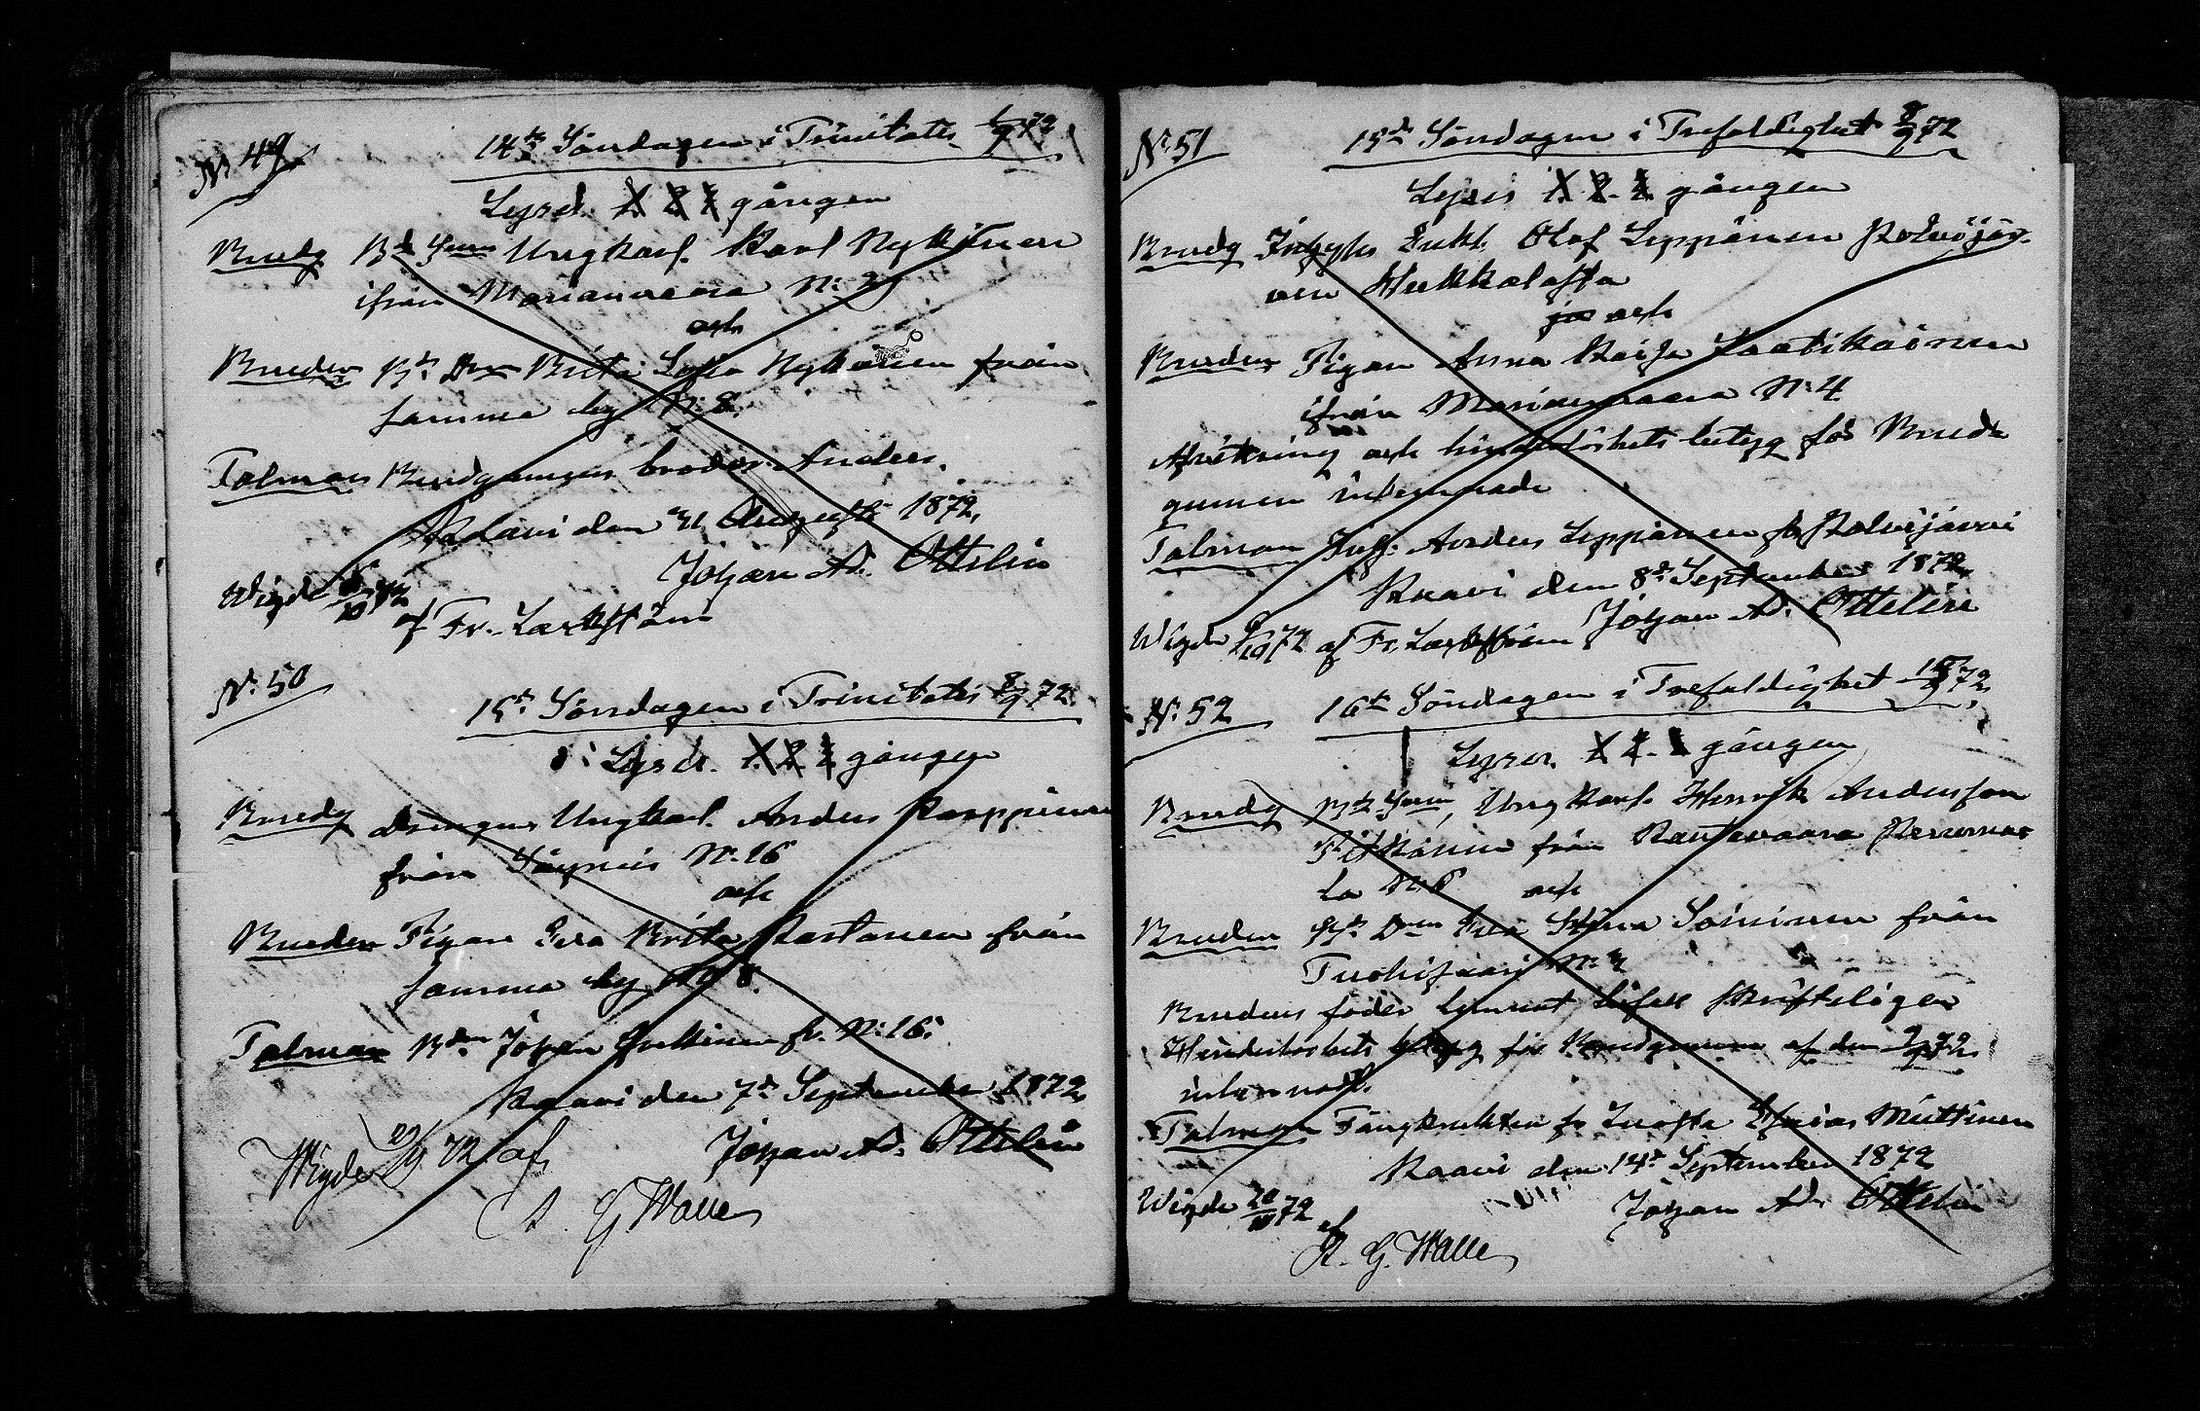 No 49
14de Söndagen i Trinitatis 1/9 72
Lysd. 1. 2. 3 gången
Brudg Bd Son Ungkarl. Karl Nykänen
ifrån Marianvaara No 2
och
Bruden Bd Dr Brita Sofia Nykänen från
samma by No 8
Talman Brudgummens broder Anders.
Kaavi den 31 Augusti 1872,
Johan Ad. Ottelin
Wigde 72
af Fr. Lackström
No 50
15de Söndagen i Trinitatis 8/9 72
Lysd. 1. 2. 3 gången
Brudg drengen Ungkarl. Anders Karppinen
från Säyneis No 16
och
Bruden Pigan Eva Brita Rastanen från
samma by No 8.
Talman Bden Johan fr. No 16.
Kaavi den 7de September 1872
Johan Ad. Ottelin
Wigde 29/9 72 af
A. G. Walle
No 51
15de Söndagen i Trefaldighet 8/9 72
Lyses 1. 2. 3 gången
Brudg Inhyses Enkl. Olof Leppänen Polvijär-
ven Hukkalasta
och
Bruden Pigan Anna Kaisa Laatikainen
ifrån Marianvaara No 4
Afvittring och hinderlöshets betyg för Brud-
gummen inlemnade
Talman Inh. Anders Leppänen fr Polvijärvi
Kaavi den 8de September 1872
Johan Ad. Ottelin
Wigde 72 af Fr. Lackström
No 52
16de Söndagen i Trefaldighet 15/9 72
Lyses. 1. 2. 3 gången
Brudg Bd Son, Ungkarl. Henrik Andersson
Pitkänen från Rautavaara
la No 5 och
Bruden Bd Dren Eva Stina Soininen från
No 2
Brudens fader lemnat
Hinderlöshets betyg för Brudgummen af den 72
inlemnadt.
Talman fr Miettinen
Kaavi den 14de September 1872
Johan Ad. Ottelin
Wigde 20/10 72
af
A. G. Walle